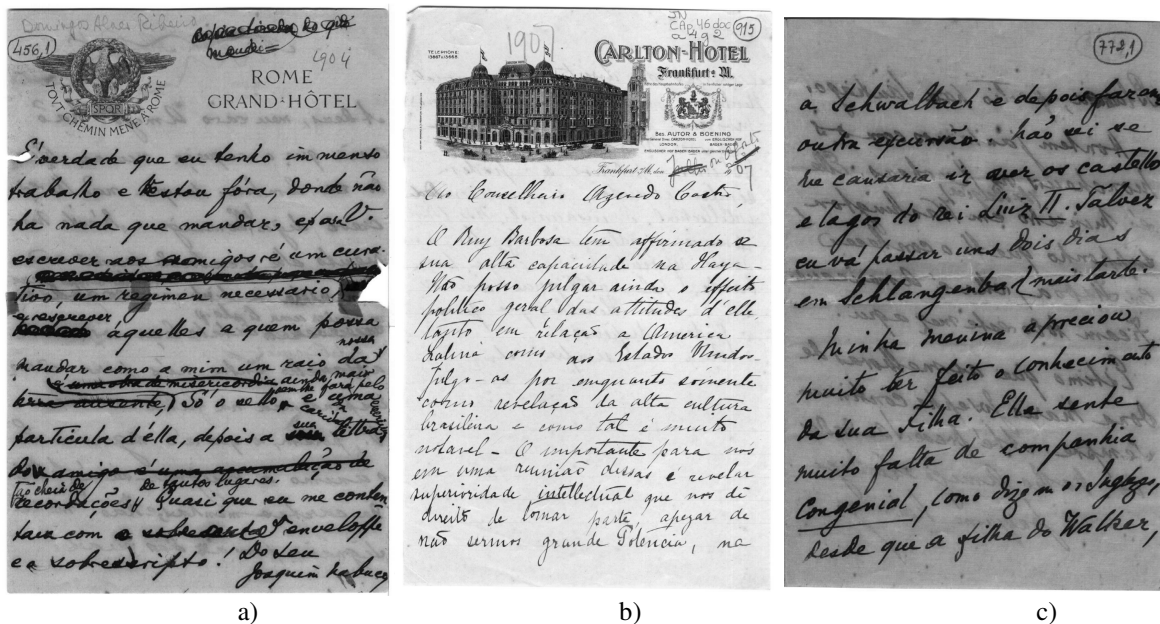 Domingo Alves Ribeiro
456,1
mandei =
1904
TOVT CHEMIN MENE A ROME
SPQR
ROME
GRAND-HÔTEL
E' verdade que eu tenho immenso
trabalho e estou fóra, donde não
ha nada que mandar, e para V.
escrever aos amigos é um cura-
tivo, um regimen necessario,
e rescrever
áquelles a quem possa
nossa
mandar como a mim um raio da
é uma obra de misericordia ainda mais
Só o sello é uma
carimbo
particula d'élla, depois a sua lettra
do amigo é uma accumulação de
tão cheia de
de tantos lugares.
recordações! Quasi que eu me conten-
tava com o enveloppe
e o sobrescripto! Do seu
Joaquim Nabuco
a)
JN
CAP 46 doc
a 492
915
1907
TELEPHONE:
CARLTON-HOTEL
Frankfurt a. M.
Bes. AUTOR & BOENING
LONDON.
BADEN-BADEN
Frankfurt a. M., den
Julho ou Agosto
907
Ao Conselheiro Azevedo Castro,
O Ruy Barbosa tem affirmado se
sua alta capacidade na Haya -
Não posso julgar ainda o effeito
politico geral das attitudes d'elle
tanto em relação a America
Latina como aos Estados Unidos -
Julgo-as por emquanto sómente
como revelação da alta cultura
brasileira e como tal é muito
notavel - O importante para nós
em uma reunião dessas é revelar
superioridade intellectual que nos dê
direito de tomar parte, apezar de
não sermos grande Potencia, na
b)
772,1
a Schwalbach e depois fazem
outra excursão não sei se
me causaria ir aver os castellos
e lagos do rei Luiz II. Talvez
eu vá passar uns dois dias
em Schlangenbad mais tarde.
Minha menina apreciou
muito ter feito o conhecimento
da sua Filha. Ella sente
muito falta de companhia
Congenial, como dizem os Inglezes,
desde que a filha do Walker,
c)